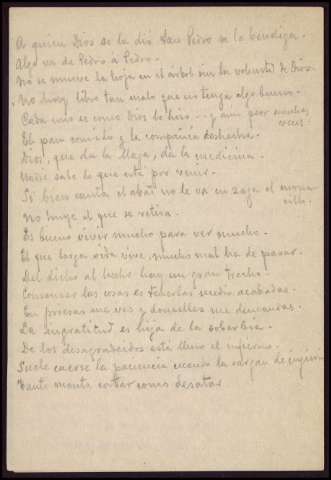 A quien Dios se la dio San Pedro se la bendiga.
Algo va de Pedro á Pedro.
No se mueve la hoja en el árbol sin la voluntad de Dios.
No hay libro tan malo que no tenga algo bueno.
Cada uno es como Dios le hizo... y aun peor muchas
veces.
El pan comido y la compañia deshecha.
Dios, que da la llaga, da la medicina.
Nadie sabe lo que está por venir.
Si bien canta el abad no le va en zaga el mona
cillo.
No huye el que se retira.
Es bueno vivir mucho para ver mucho.
El que larga vida vive, mucho mal ha de pasar.
Del dicho al hecho hay un gran trecho.
Comenzar las cosas es tenerlas medio acabadas.
En priesas me ves y doncellez me demandas.
La ingratitud es hija de la soberbia.
De los desagradecidos está lleno el infierno.
Suele caerse la paciencia cuando la cargan de injurias
Tanto monta cortar como desatar